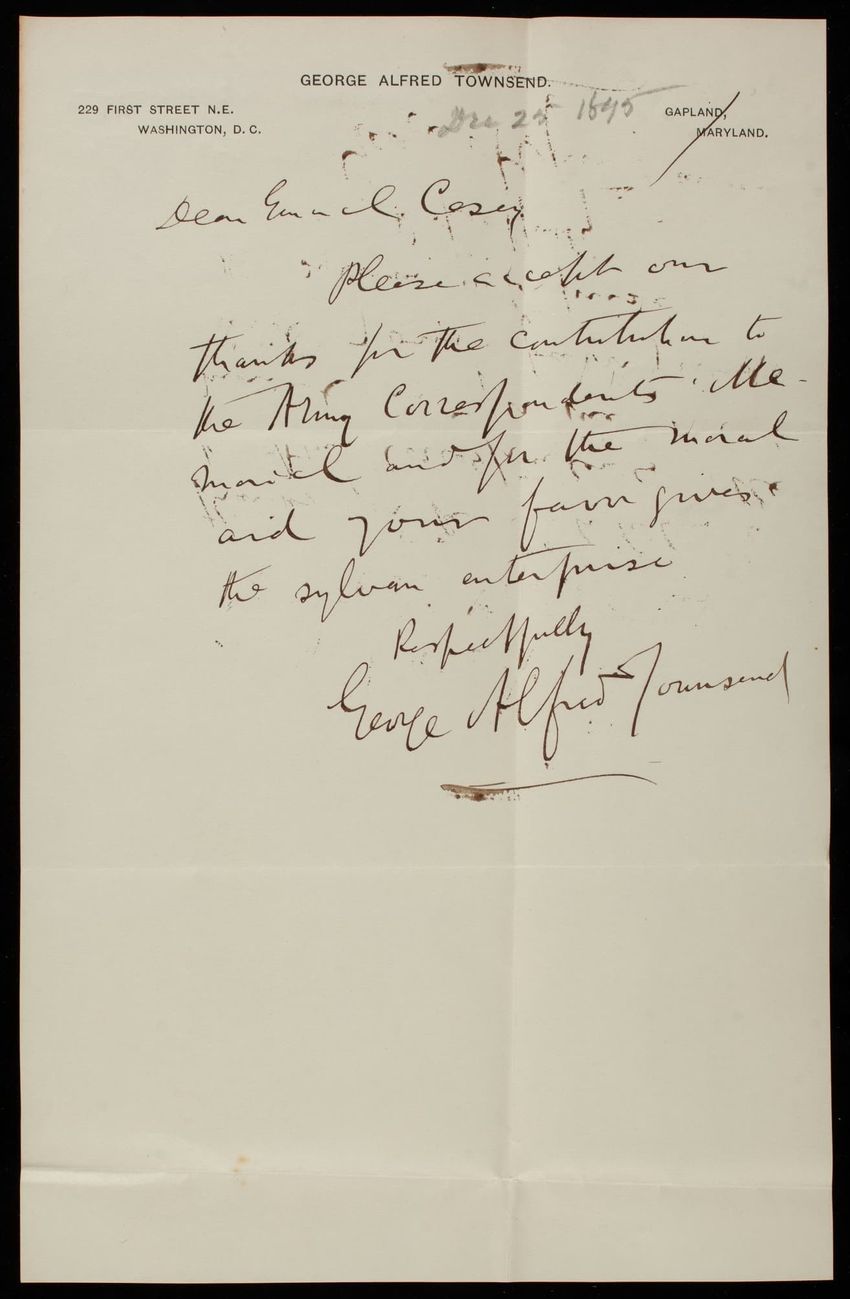 GEORGE ALFRED TOWNSEND.
229 FIRST STREET N.E.
WASHINGTON, D. C.
GAPLAND,
MARYLAND.
Dec 25 1895
Dear General Casey
Please accept our
thanks for the contribution to
the Army Correspondents' Me-
morial and for the moral
aid your favor gives
the sylvan enterprise
Respectfully
George Alfred Townsend